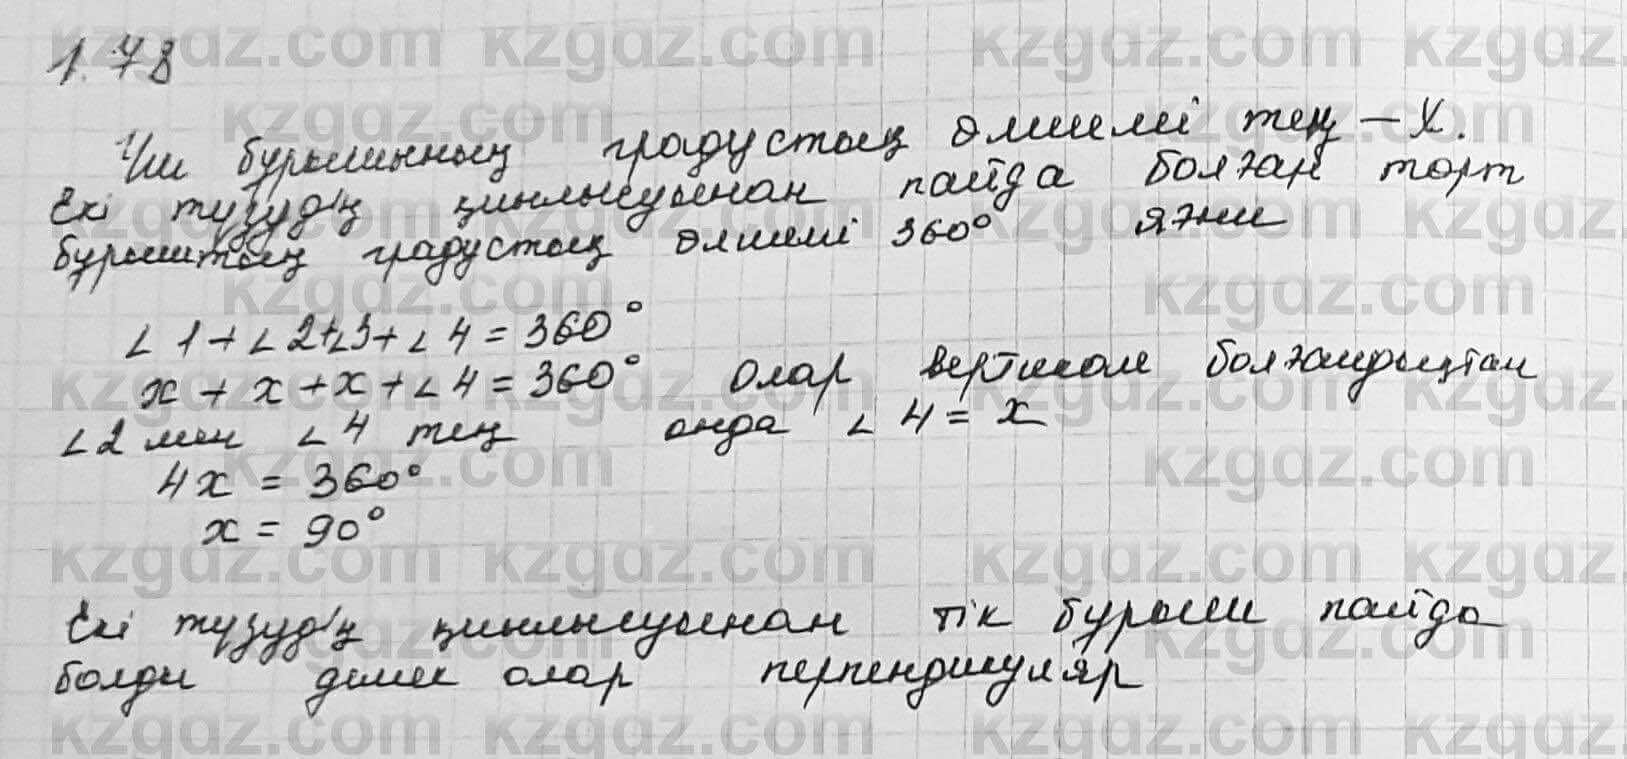 1.78
Үш бұрышының градустық өлшемі тең – х.
Екі түзудің қиылысуынан пайда болған төрт
бұрыштың градустық өлшемі 360° яғни
∠1+∠2+∠3+∠4=360°
х+х+х+∠4=360° Олар вертикаль болғандықтан
∠2 мен ∠4 тең онда ∠4=х
4х=360°
х=90°
Екі түзудің қиылысуынан тік бұрыш пайда
болды демек олар перпендикуляр
kzgdz.com